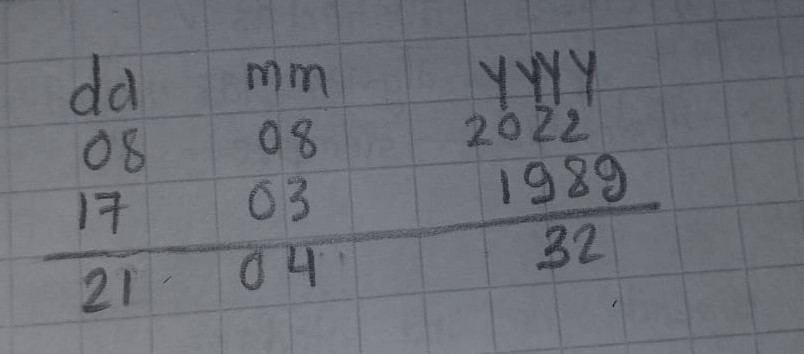 dd mm yyyy
08 08 2022
17 03 1989
21 04 32